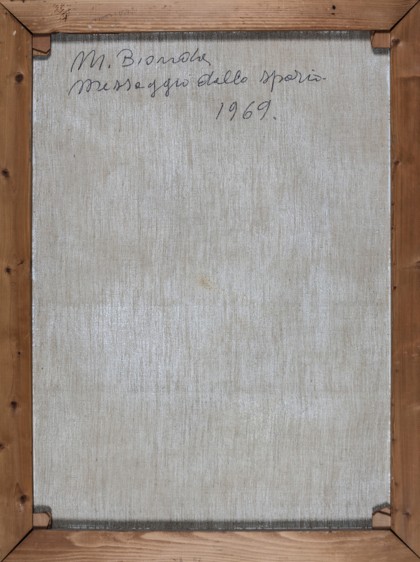 M. Bionda
messaggio dello spazio
1969.